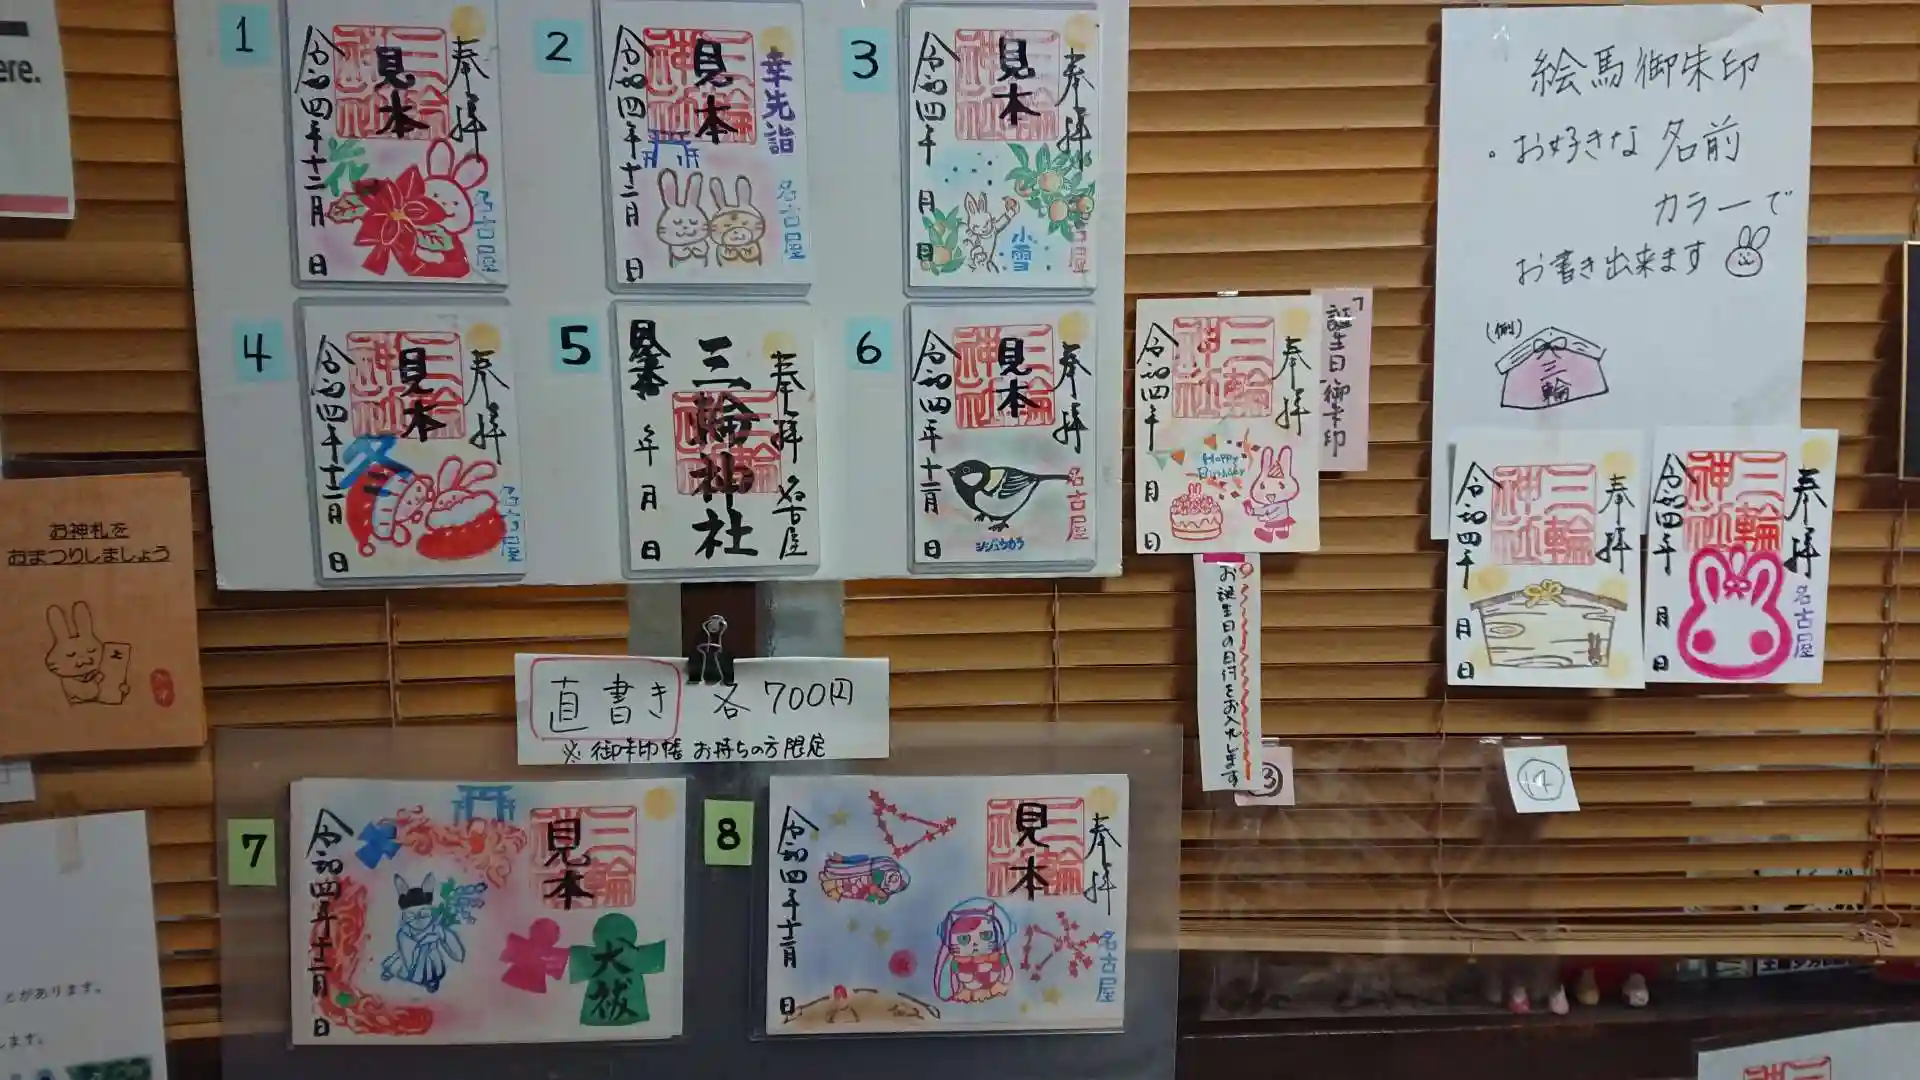 ere.
1
奉拝
三輪神社
見本
令和四年十二月 日
花
名古屋
2
幸先詣
三輪神社
見本
令和四年十二月 日
名古屋
3
奉拝
三輪神社
見本
令和四年 月 日
小雪
名古屋
4
奉拝
三輪神社
見本
令和四年十二月 日
冬
名古屋
5
奉拝
三輪神社
見本
年 月 日
名古屋
6
奉拝
三輪神社
見本
令和四年十二月 日
名古屋
シジュウカラ
誕生日御朱印
奉拝
三輪神社
令和四年 月 日
Happy
Birthday
お誕生日の日付をお入れします
③
絵馬御朱印
・お好きな名前
カラーで
お書き出来ます
(例)
三輪
奉拝
三輪神社
令和四年 月 日
奉拝
三輪神社
令和四年 月 日
名古屋
お神札を
おまつりしましょう
直書き 各700円
※御朱印帳お持ちの方限定
7
三輪神社
見本
令和四年十二月 日
大祓
8
奉拝
三輪神社
見本
令和四年十二月 日
名古屋
とがあります。
します。